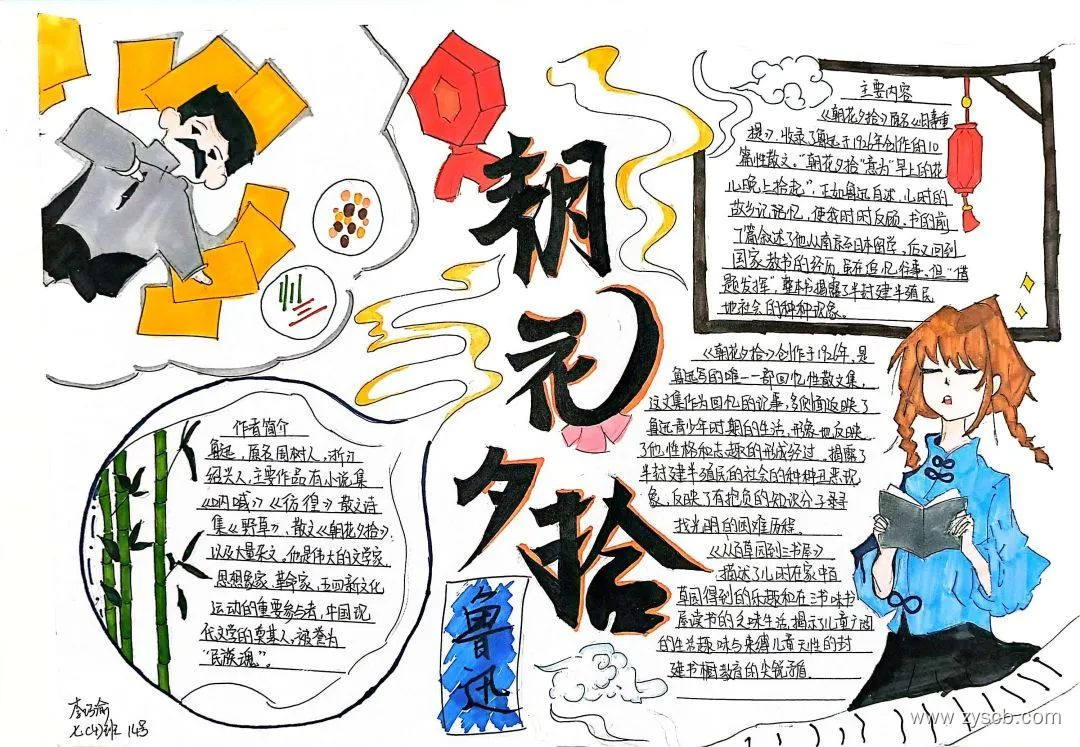 朝花夕拾
鲁迅
主要内容
《朝花夕拾》原名《旧事重
提》,收录了鲁迅于1926年创作的10
篇性散文。“朝花夕拾”意为“早上的花
儿晚上拾起”,正如鲁迅自述,儿时的
故乡记忆,使我时时反顾.书的前
了篇叙述了他从南京到日本留学,后又回到
国家教书的经历,虽在追忆往事,但“借
题发挥”,整本书揭露了半封建半殖民
地社会的种种现象。
《朝花夕拾》创作于1926年,是
鲁迅写的唯一一部回忆性散文集,
这文集作为回忆的记事,多侧面反映了
鲁迅青少年时期的生活,形象地反映
了他性格和志趣的形成经过.揭露了
半封建半殖民的社会的种种丑恶现
象,反映了有抱负的知识分子寻寻
找光明的困难历程。
《从百草园到三书屋》
描述了儿时在家中百
草园得到的乐趣和在三书味书
屋读书的乏味生活,揭示了儿童广阔
的生活趣味与束缚儿童天性的封
建书橱教育的尖锐矛盾.
作者简介
鲁迅,原名周树人,浙江
绍兴人,主要作品有小说集
《呐喊》《彷徨》散文诗
集《野草》、散文《朝花夕拾》
以及大量杂文。他是伟大的文学家、
思想家、革命家,五四新文化
运动的重要参与者,中国现
代文学的奠基人,被誉为
“民族魂”。
七(4)班 14号
www.zyscb.com